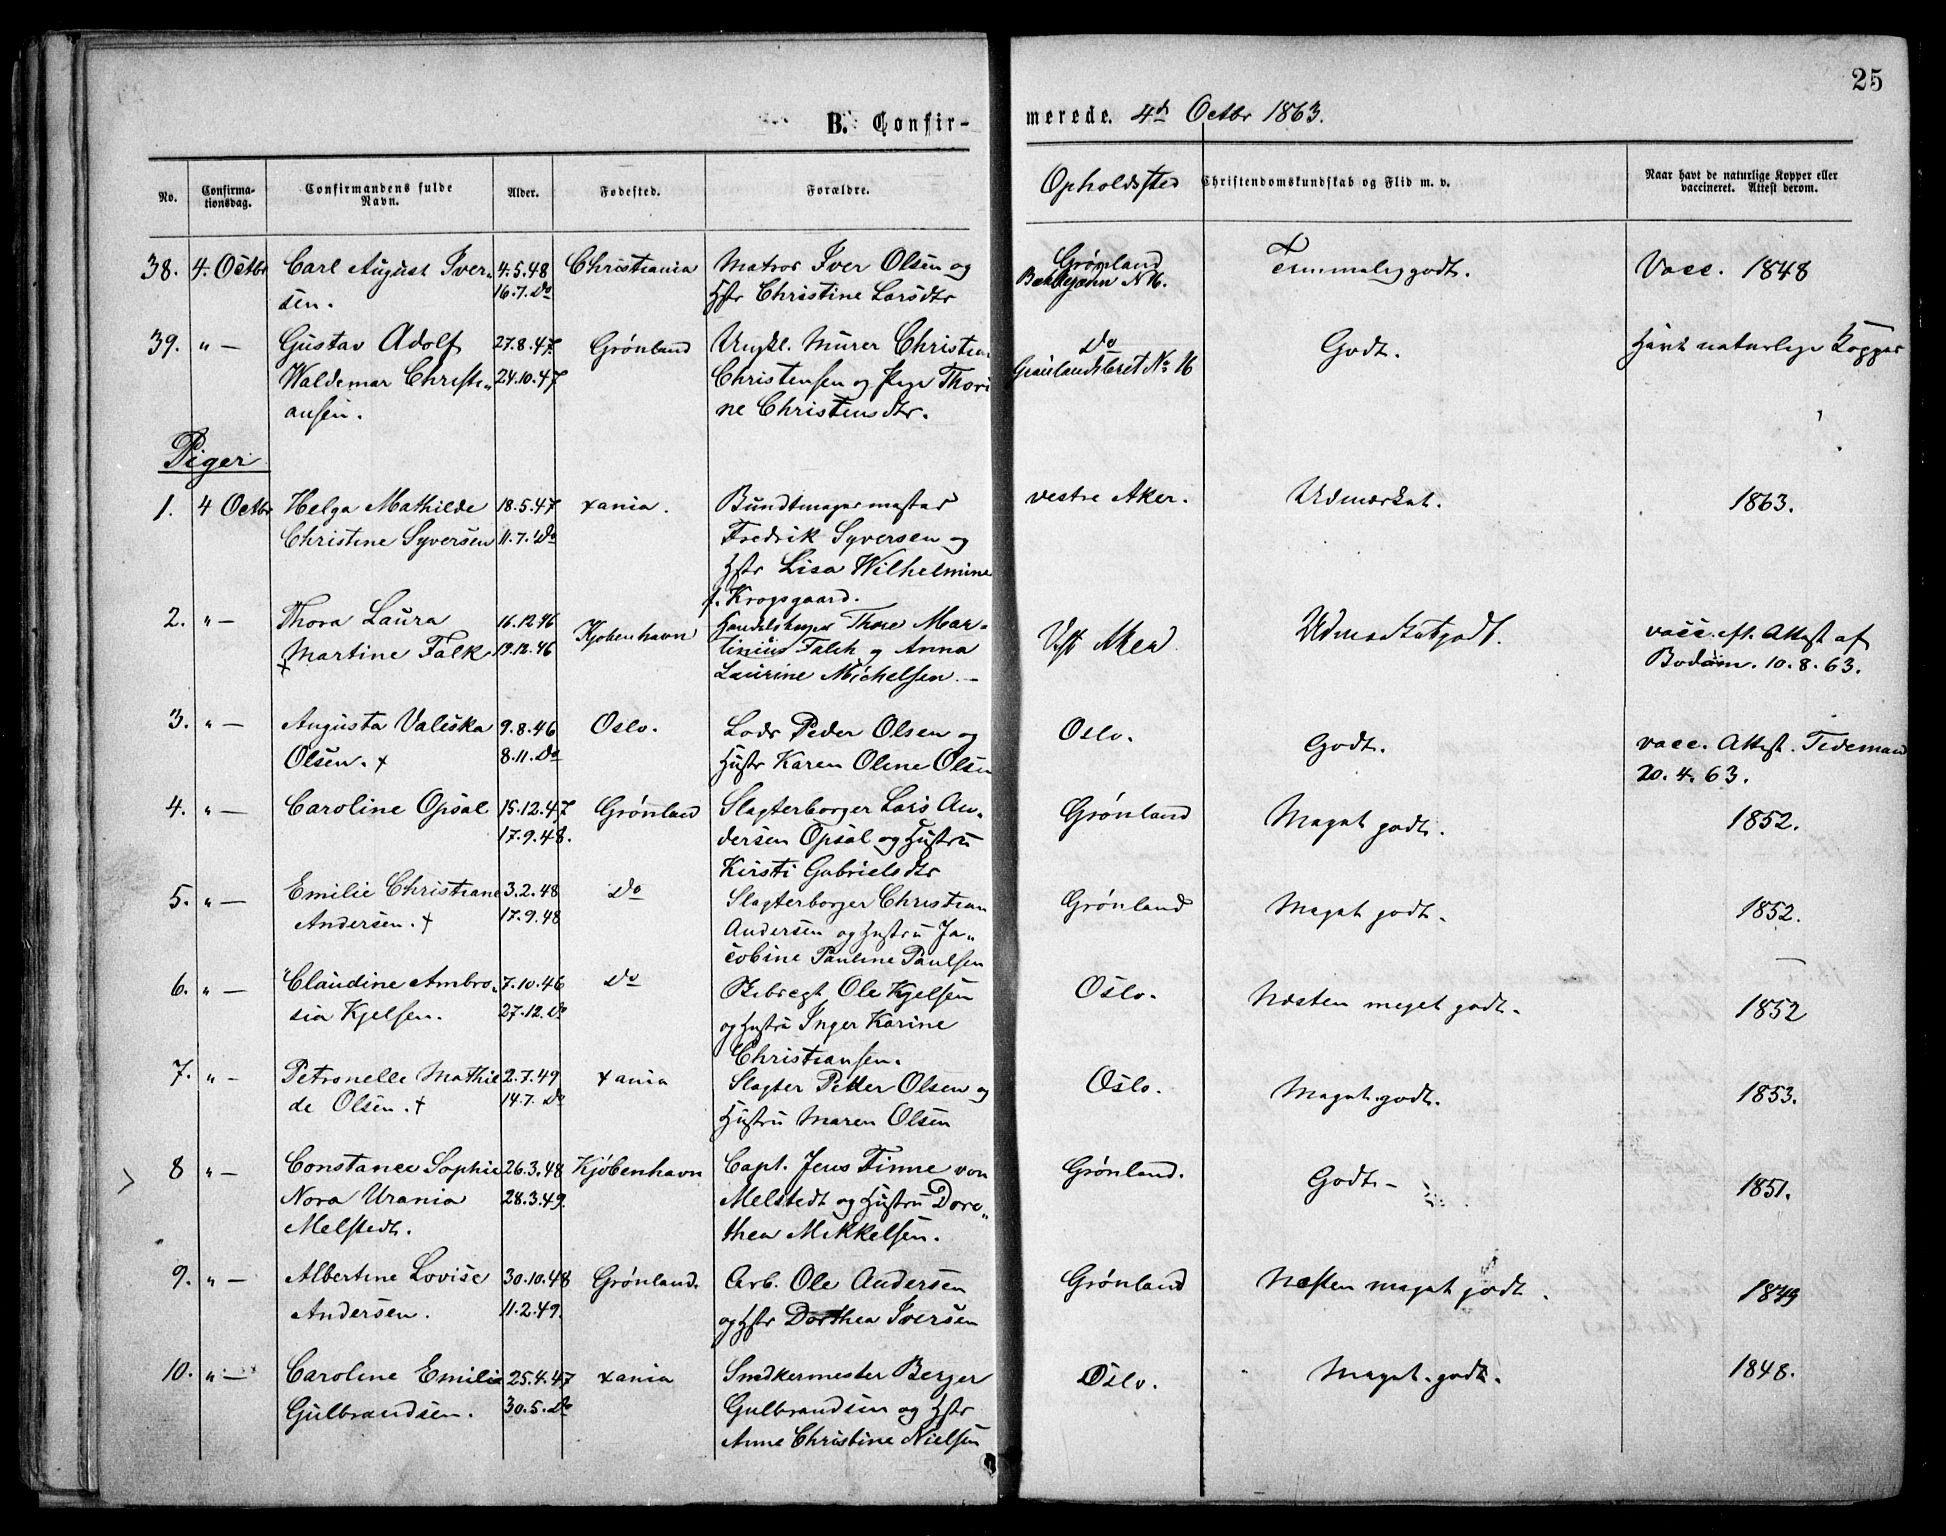 25
B. Confir-
merede. 4de Octbr 1863.
No.
Confirma-
tionsdag.
Confirmandens fulde
Navn.
Alder.
Fødested.
Forældre.
Opholdssted
Christendomskundskab og Flid m. v.
Naar havt de naturlige Kopper eller
vaccineret. Attest derom.
38. 4. Octbr Carl August Iver- 4.5.48 Christiania Matros Iver Olsen og Grønland Temmelig godt. Vacc. 1848
sen. 16.7. Do Hstr Christine Larsdtr N 16.
39. " — Gustav Adolf 27.8.47. Grønland Ungkl. Murer Christian Do Godt. Havt naturlige Kopper
Waldemar Christi- 24.10.47 Christensen og Pige Thori Grønlandsleret No 16
ansen. ne Christensdtr.
Piger
1. 4 Octbr Helga Mathilde 18.5.47 xania. Bundtmagermester vestre Aker. Udmærket. 1863.
Christine Syversen 11.7. Do Fredrik Syversen og
Hstr Lisa Wilhelmine
f. Krogsgaard.
2. " — Thora Laura 16.12.46 Kjøbenhavn Thore Mar- Vest Aker Udmærket godt. vacc. eft. Attest af
x Martine Falk 19.12.46 tinius Falch og Anna Bodom. 10.8.63.
Laurine Michelsen. —
3. " — Augusta Valiska 9.8.46 Oslo. Lods Peder Olsen og Oslo. Godt. vacc. Attest. Tidemand
Olsen. x 8.11. Do Hustr Karen Oline Olsen 20.4.63.
4. " — Caroline Opsal 15.12.47 Grønland Slagterborger Lars An- Grønland Meget godt. 1852.
17.9.48. dersen Opsal og Hustru
Kirsti Gabrielsdtr
5. " — Emilie Christiane 3.2.48 Do Slagterborger Christian Grønland Meget godt. 1852.
Andersen. x 17.9.48 Andersen og Hustru Ja-
cobine Pauline Paulsen
6. " — Claudine Ambro- 7.10.46 Do Ole Kjelsen Oslo. Næsten meget godt. 1852
sia Kjelsen. 27.12. Do og Hustru Inger Karine
Christiansen.
7. " — Petronelle Mathil 2.7.49 xania Slagter Petter Olsen og Oslo. Meget godt. 1853.
de Olsen. x 14.7. Do Hustru Maren Olsen
8 " — Constance Sophie 26.3.48 Kjøbenhavn Capt. Jens Finne von Grønland. Godt — 1851.
Nora Urania 28.3.49. Melstedt og Hustru Doro-
Melstedt. thea Mikkelsen.
9. " — Albertine Lovise 30.10.48 Grønland. Arb. Ole Andersen Grønland Næsten meget godt. 1849
Andersen. 11.2.49. og Hstr Dorthea Iversen
10. " — Caroline Emilie 25.4.47 xania Snedkermester Berger Oslo. Meget godt. 1848.
Gulbrandsen. 30.5. Do Gulbrandsen og Hstr
Anne Christine Nielsen